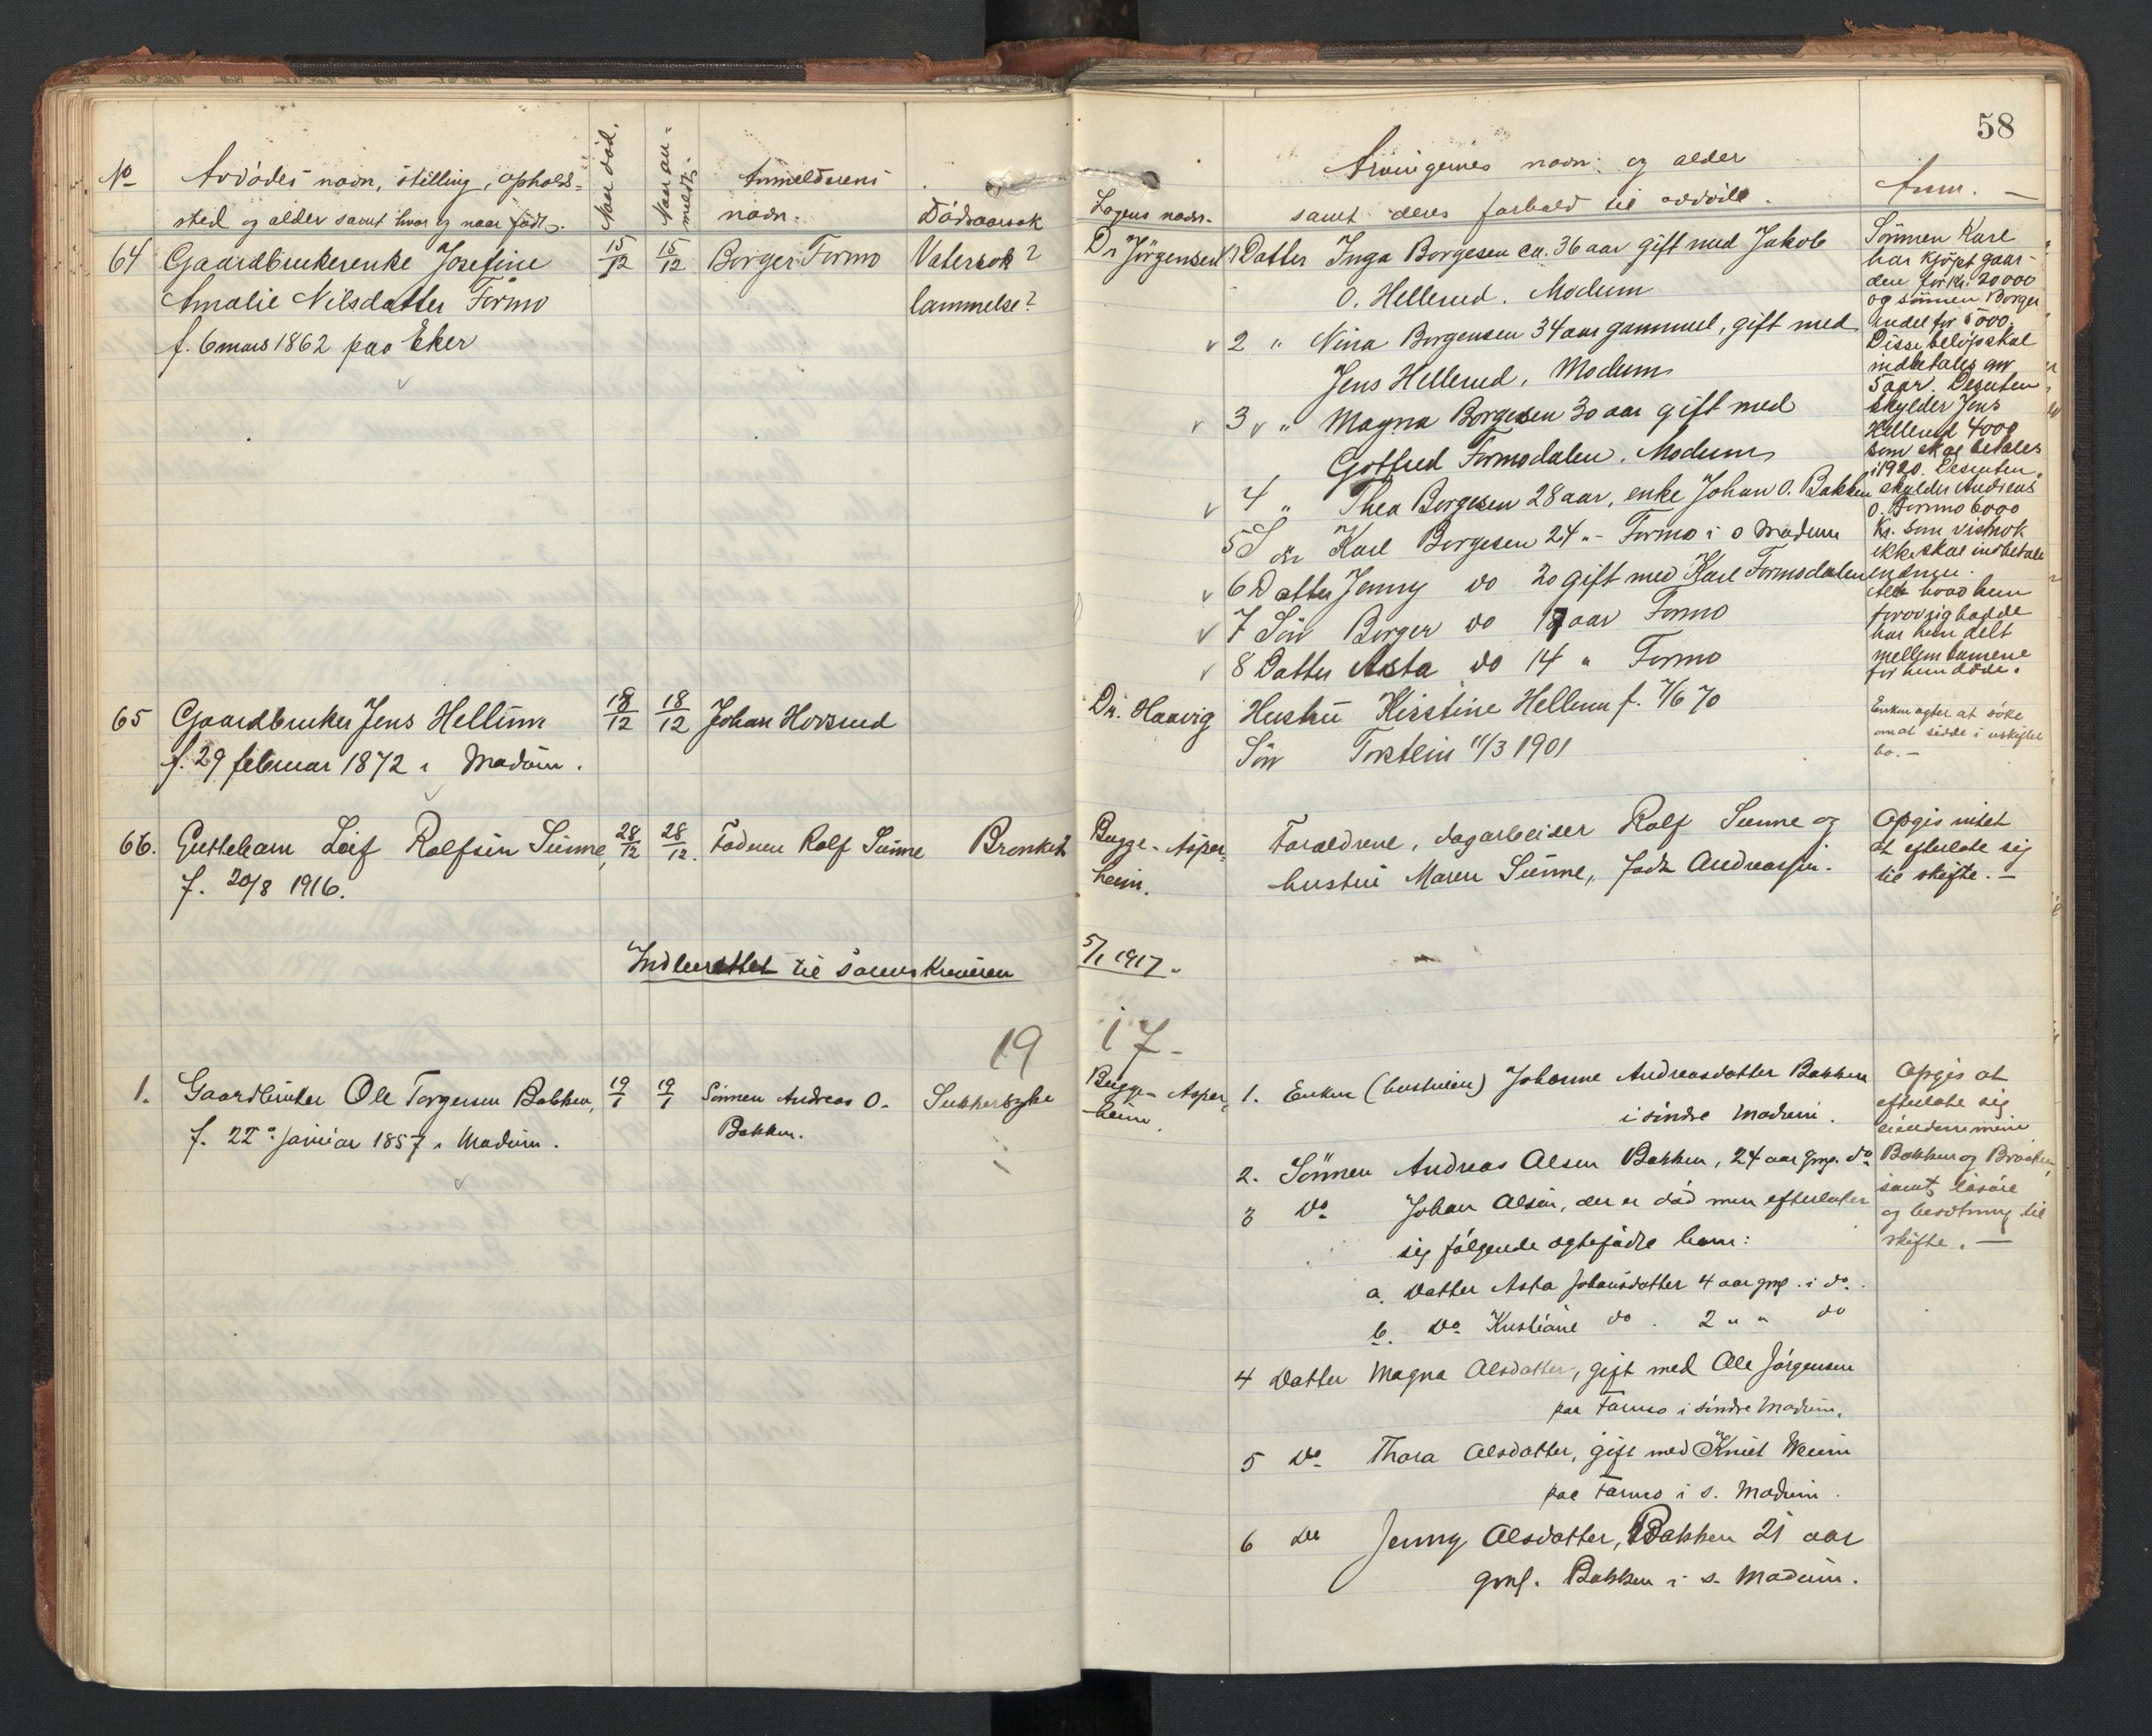 58
No
Avdødes navn, stilling, opholds=
sted og alder samt hvor og naar født.
Naar død.
Naar an=
meldt.
Anmelderens
navn.
Dødsaarsak
Lægens navn.
Arvingernes navn og alder
samt deres forhold til avdøde.
Anm. —
64 Gaardbrukerenke Josefine
Amalie Nilsdatter Formo
f. 6 mars 1862 paa Eker
15/12 15/12 Borger Formo
Vatersok?
lammelse?
Dr Jörgensen
1 Datter Inga Borgesen ca. 36 aar gift med Jakob
O. Hellerud. Modum
2 " Nina Borgensen 34 aar gammel, gift med
Jens Hellerud, Modum
3 " Magna Borgesen 30 aar gift med
Gotfred Formodalen. Modum
4 " Thea Borgesen 28 aar, enke Johan O. Bakken
5 Sön Karl Borgesen 24 " - Formo i S Modum
6 Datter Jenny do 20 gift med Karl Formodalen
7 Sön Borger do 17 aar Formo
8 Datter Asta do 14 " Formo
Sönnen Karl
har kjöpt gaar-
den for kr. 20000
og sönnen Borger
andel for 5000.
Disse belöp skal
indbetales om
5 aar. Desuten
skylder Jens
Hellerud 4000
som skal betales
i 1920. Desuten
skylder Andreas
O. Formo 6000
Kr. som vistnok
ikke skal indbetales
endnu.
Alt hvad hun
forövrig hadde
har hun delt
mellem barnene
för hun döde.
65 Gaardbruker Jens Hellum
f. 29 februar 1872 i Modum.
18/12 18/12 Johan Hovrud
Dr. Haavig
Hustru Kirstine Hellum f. 7/6 70
Sön Torstein 11/3 1901
Enken agter at söke
om at sidde i uskiftet
bo. —
66. Guttebarn Leif Rolfsen Sunne,
f. 20/8 1916.
28/12 28/12. Faderen Rolf Sunne
Bronkit
Bugge-Asper=
heim.
Forældrene, dagarbeider Rolf Sunne og
hustru Maren Sunne, født Andreassen.
Opgis intet
at efterlate sig
til skifte. —
Indberettet til sorenskriveren 5/1 1917.
1917-
1. Gaardbruker Ole Torgersen Bakken,
f. 22. januar 1857 i Modum.
19/1 19/1 Sönnen Andreas O.
Bakken.
Sukkersyke
Bugge-Asper=
heim.
1. Enken (hustruen) Johanne Andreasdatter Bakken
i söndre Modum.
2. Sönnen Andreas Olsen Bakken, 24 aar gml. do
3 do Johan Olsen, der er död men efterlater
sig fölgende egtefødte barn:
a. Datter Asta Johansdatter 4 aar gml. i do.
b. do Kristiane do. 2 " " do
4 Datter Magna Olsdatter, gift med Ole Jörgensen
paa Formo i söndre Modum.
5 do Thora Olsdatter, gift med Knut
paa Formo i s. Modum.
6 do Jenny Olsdatter, Bakken 21 aar
gml. Bakken i s. Modum.
Opgis at
efterlate sig
eiendommene
Bakken og Braaten,
samt lösöre
og besætning til
skifte. —